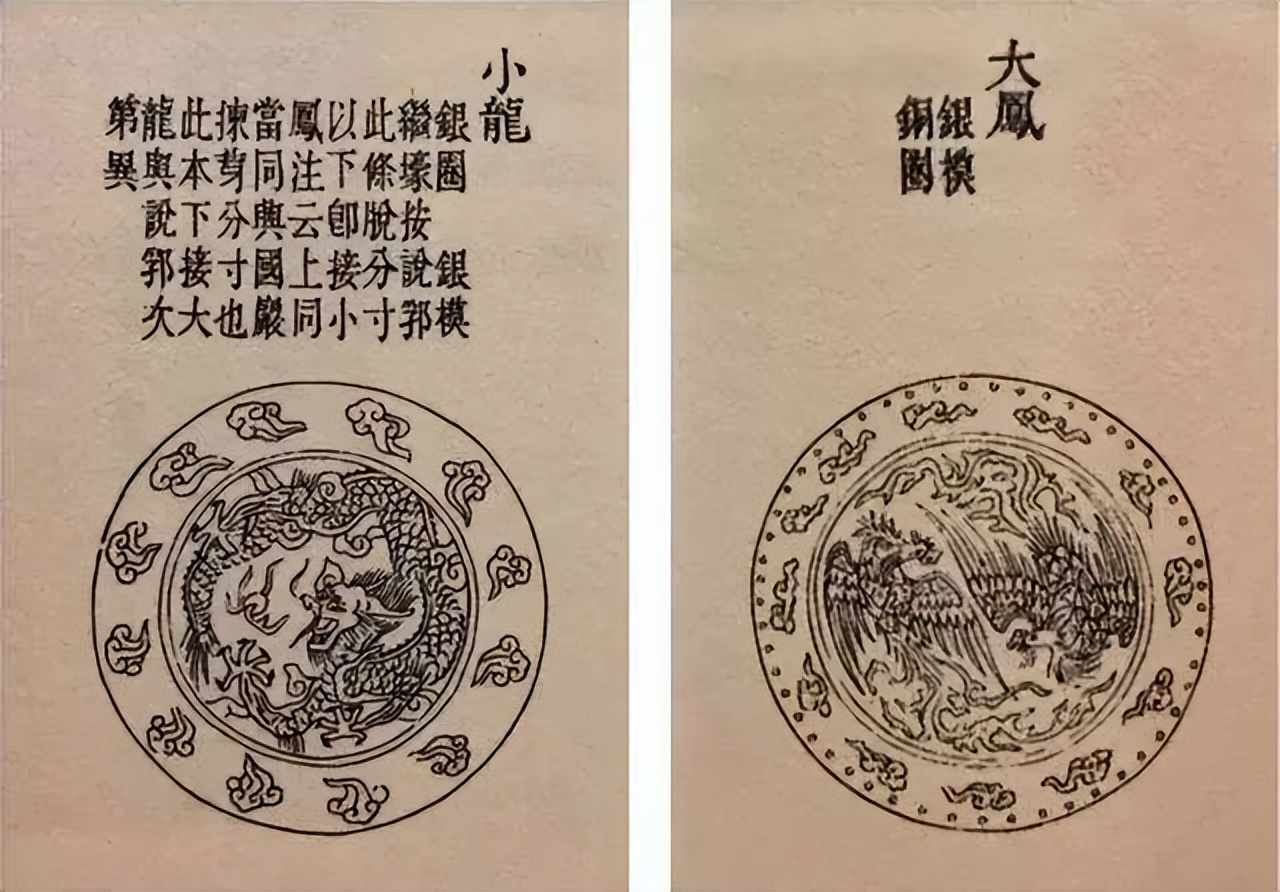 小龍
銀圈　銀模
繼壕按說郛
此條脫分寸
以下卽接小
鳳注云上同
當同與國巖
揀芽分寸也
此本下接大
龍與說郛次
第異
大鳳
銀模
銅圈